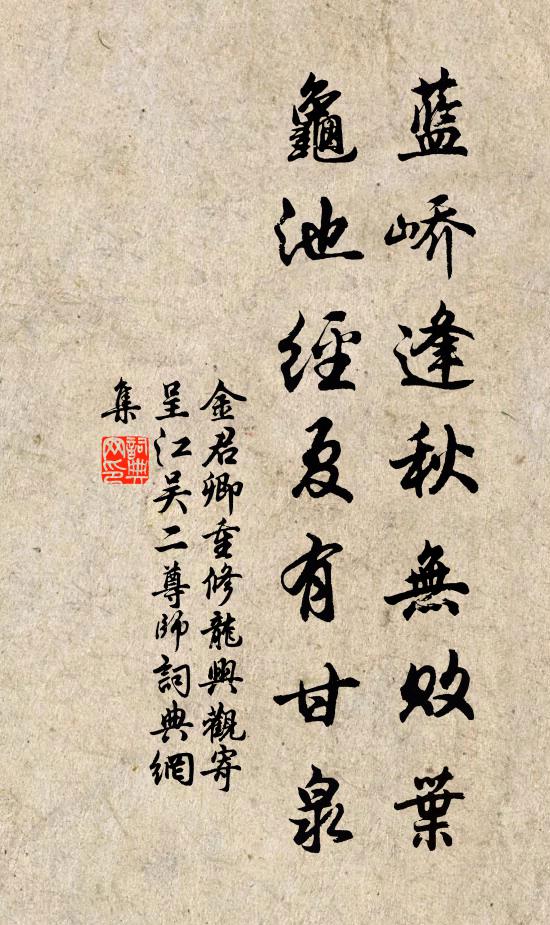 藍嶠逢秋無敗葉
龜池經夏有甘泉
金君卿重修龍興觀寄
呈江吳二尊師詞典網
集
詞典
网印